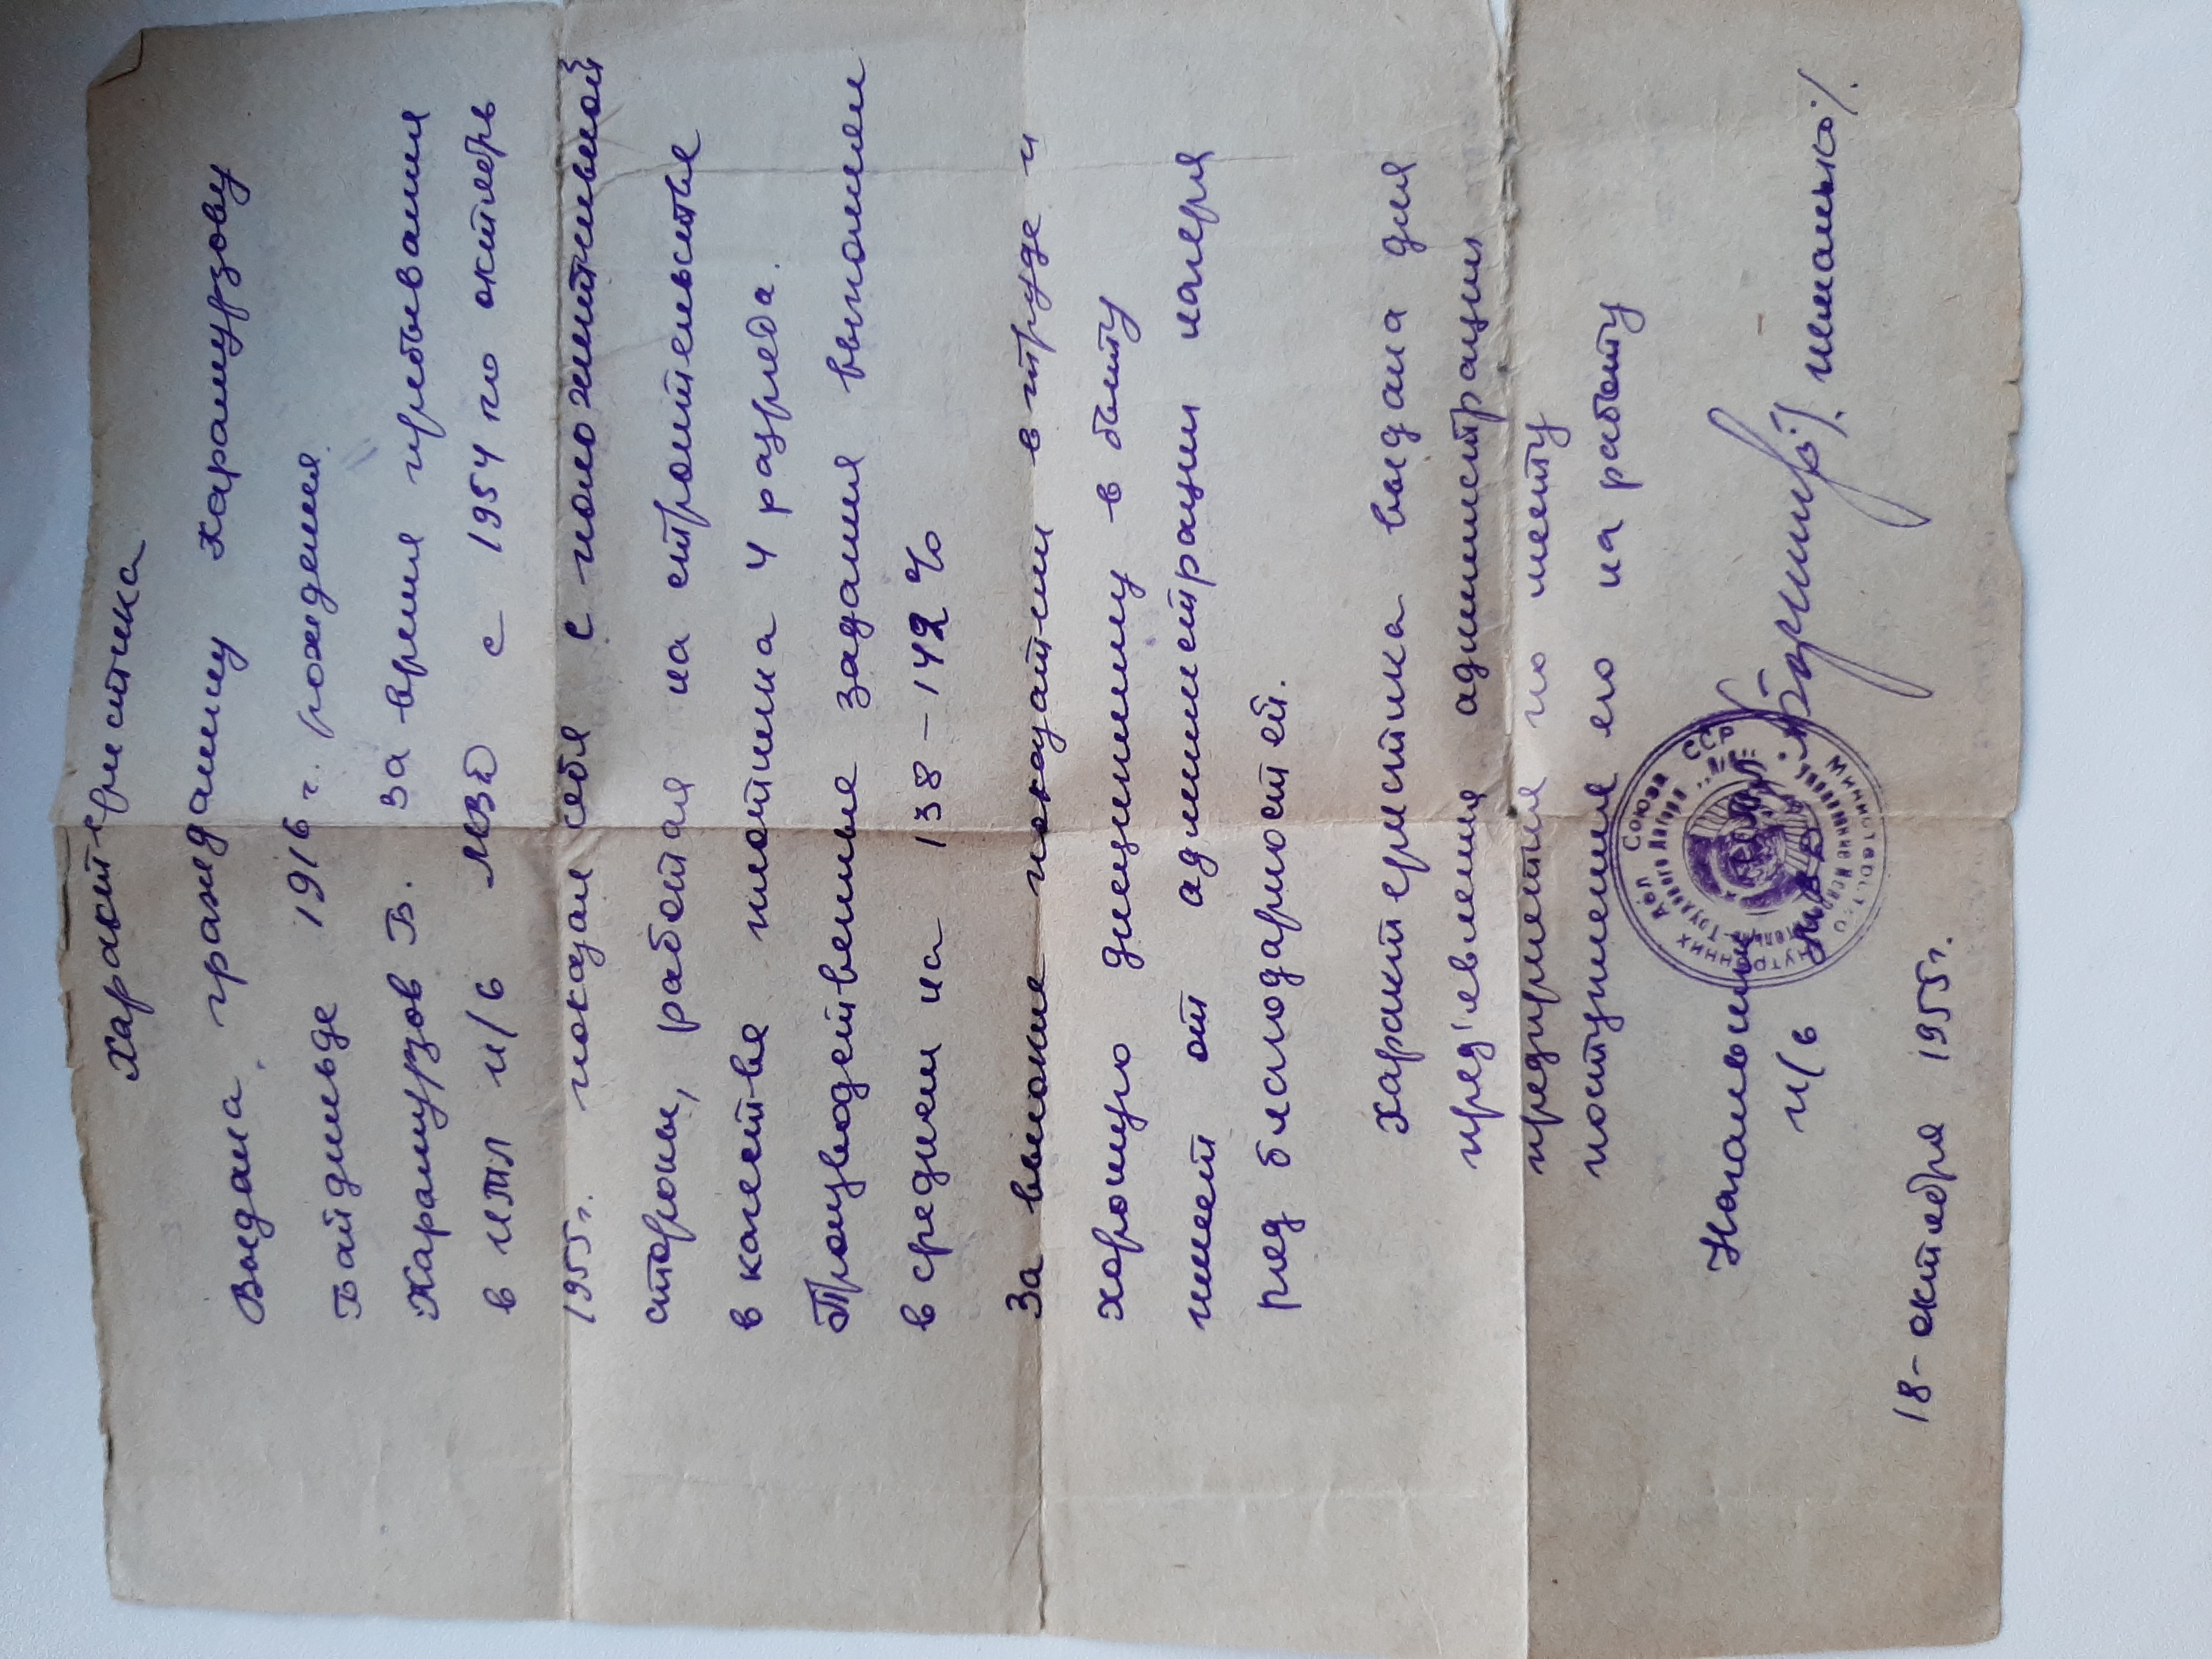 Характеристика
Выдана гражданину Харамурзову
Байдильде 1916 г. рождения.
Харамурзов Б. за время пребывания
в ИТЛ п/я МВД с 1954 по октябрь
1955г. показал себя с положительной
стороны, работая на строительстве
в качестве плотника 4 разряда.
Производственные задания выполнял
в среднем на 138-142 %
За высокие показатели в труде и
хорошую дисциплину в быту
имеет от администрации лагеря
ряд благодарностей.
Характеристика выдана для
пред'явления администрации
предприятия по месту
поступления его на работу
Начальник
п/я
18- октября 1955г.
Министерство Внутренних Дел Союза ССР